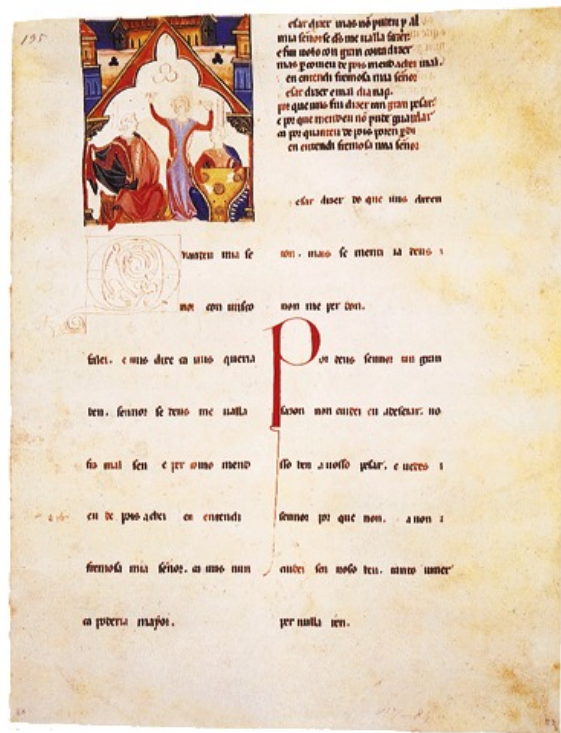 195
uanteu mia se
nor con uusco
falei. e uus dixe ca uus queria
ben. sennor se deus me ualla
fiz mal sen e per como mend
eu de pois achei en entendi
fremosa mia señor. ca uus nun
ca poderia mayor.
esar dizer mas nõ pudeu y al
mia señor se me ualla fazer.
e fui uolo con gran coita dizer
mas de pois mendachei mal.
en entendi fremosa mia señor
esar dizer e mal dia naçi.
por que uus fui dizer tan gran pesar.
e por que mendeu nõ pude guardar
ca por quanteu de pois poren
en entendi fremosa mia señor
esar dizer de que uus
. mais se menti ia deus
non me per don.
Por deus sennor tan gran
sazon non cuidei eu adeseiar. uo
sso ben auosso pesar. e uedes
sennor por que non. a non
cuidei sen uoso ben. tanto uiuer
per nulla ren.